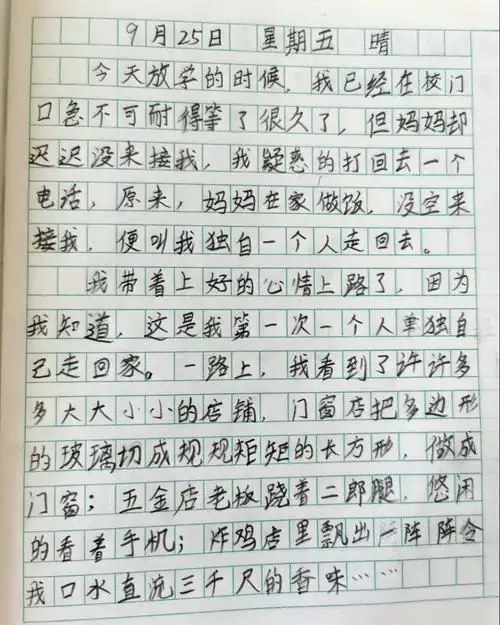 9月25日 星期五 晴
今天放学的时候，我已经在校门
口急不可耐得等了很久了，但妈妈却
迟迟没来接我，我疑惑的打回去一个
电话，原来，妈妈在家做饭，没空来
接我，便叫我独自一个人走回去。
我带着上好的心情上路了，因为
我知道，这是我第一次一个人单独自
己走回家。一路上，我看到了许许多
多大大小小的店铺，门窗店把多边形
的玻璃切成规规矩矩的长方形，做成
门窗；五金店老板跷着二郎腿，悠闲
的看着手机；炸鸡店里飘出一阵阵令
我口水直流三千尺的香味……